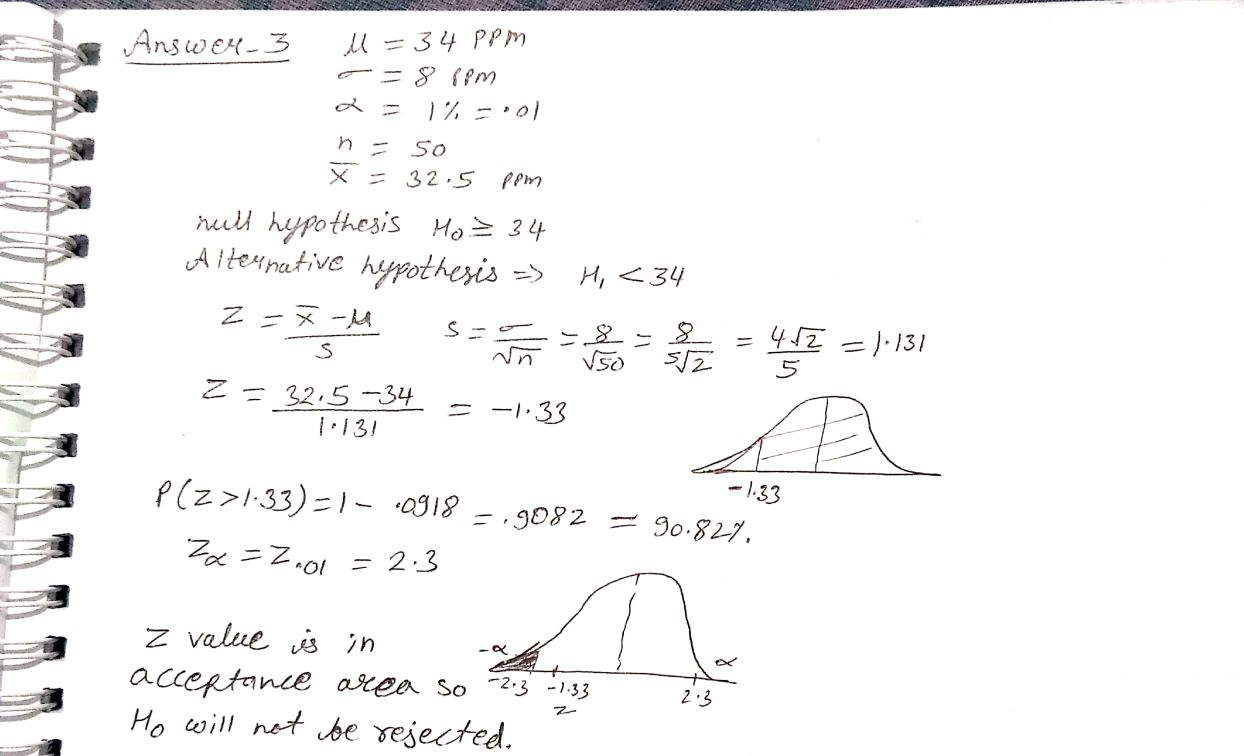 Answer-3
μ = 34 PPM
σ = 8 PPM
α = 1% = .01
n = 50
X̄ = 32.5 PPM
null hypothesis H₀ ≥ 34
Alternative hypothesis => H₁ < 34
Z = (x̄ - μ)/S   S = σ/√n = 8/√50 = 8/5√2 = 4√2/5 = 1.131
Z = (32.5 - 34)/1.131 = -1.33
-1.33
P(Z > 1.33) = 1 - .0918 = .9082 = 90.82%.
Zα = Z.01 = 2.3
Z value is in
acceptance area so
H₀ will not be rejected.
-α
α
-2.3 -1.33 2.3
Z